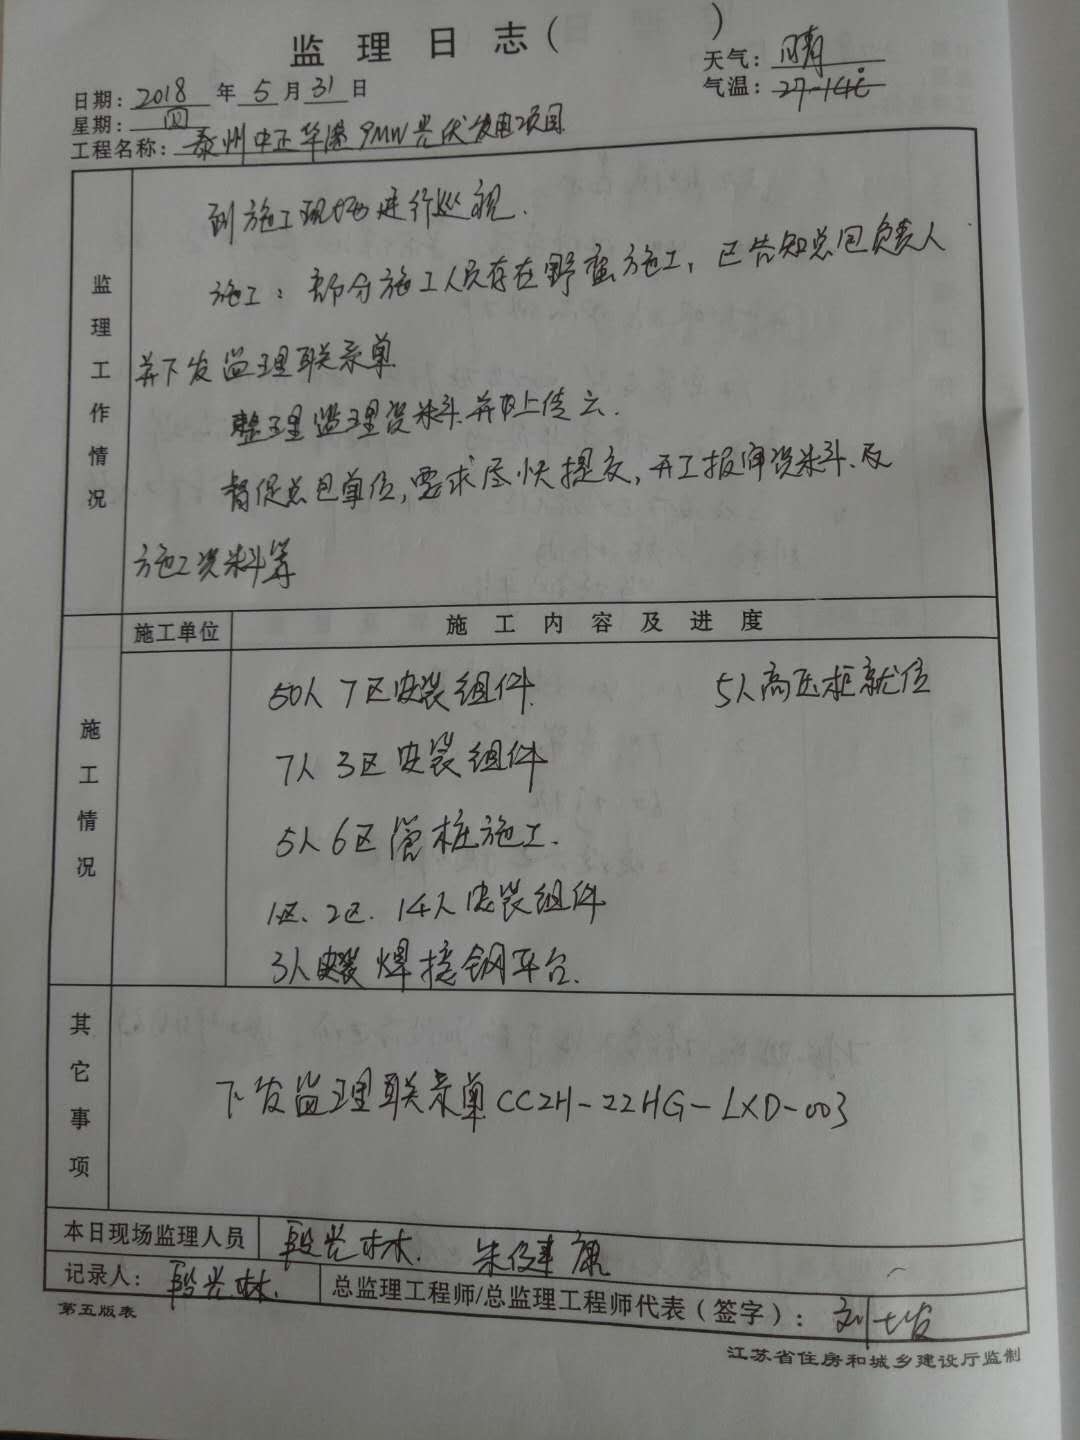 监 理 日 志 (          )
天气: 晴
日期: 2018 年 5 月 31 日
气温: 27-14℃
星期: 四
工程名称: 泰州中正华港9MW光伏发电项目
监理工作情况
到施工现场进行巡视.
施工: 部分施工人员存在野蛮施工, 已告知总包负责人
并下发监理联系单
整理监理资料.并且上传云.
督促总包单位,要求尽快提交,开工报审资料.及
施工资料等
施工情况
施工单位
施 工 内 容 及 进 度
50人7区安装组件.
5人高压柜就位
7人3区安装组件
5人6区管桩施工.
1区、2区.14人安装组件
3人安装焊接钢平台.
其它事项
下发监理联系单CCZH-ZZHG-LXD-003
本日现场监理人员
段兴林. 朱健康
记录人: 段兴林.
总监理工程师/总监理工程师代表(签字):
第五版表
江苏省住房和城乡建设厅监制